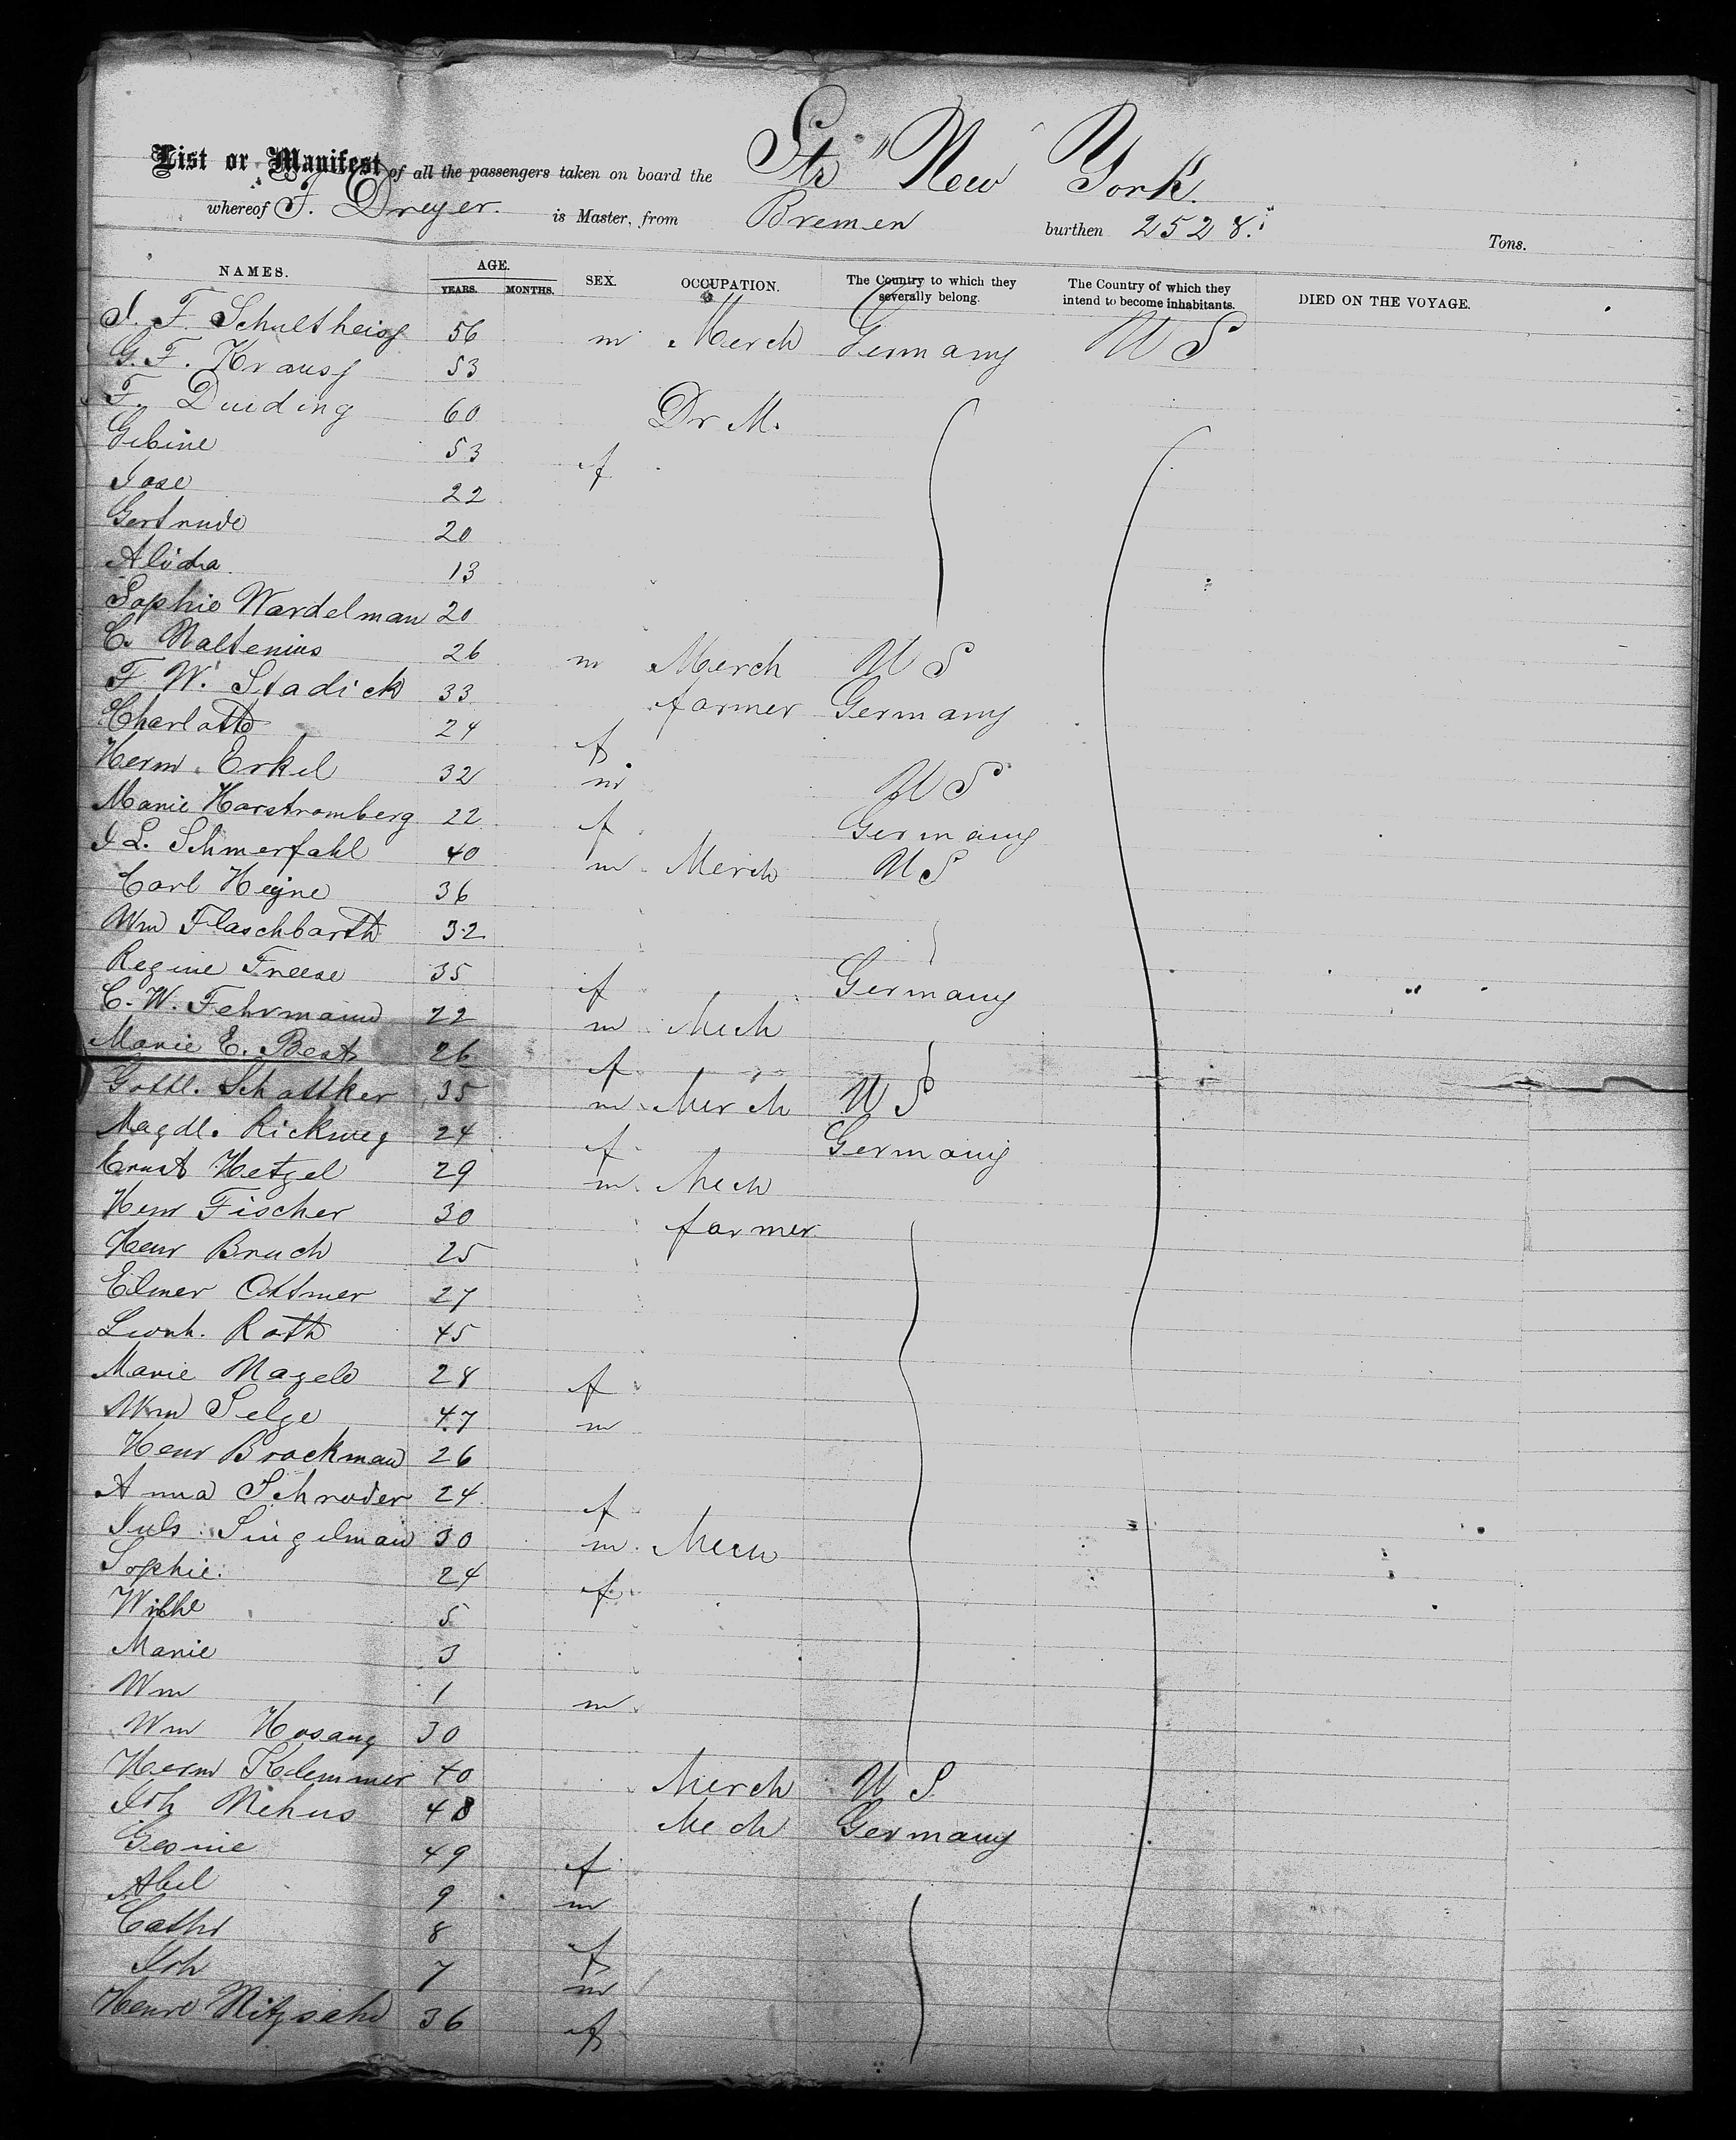 List or Manifest of all the passengers taken on board the Str "New York.
whereof F. Dreyer. is Master, from Bremen burthen 2528. Tons.
NAMES. AGE. YEARS. MONTHS. SEX. OCCUPATION. The Country to which they severally belong. The Country of which they intend to become inhabitants. DIED ON THE VOYAGE.
J. F. Schultheiss 56 m Merch Germany U S
G. F. Krauss 53
F. Duiding 60 Dr M.
Gebine 53 f
Jose 22
Gertrude 20
Alida 13
Sophie Wardelman 20
C. Naltenius 26 m Merch U S
F W. Stadick 33 farmer Germany
Charlotte 24 f
Herm. Erkel 32 m U S
Marie Harstromberg 22 f Germany
J L. Schmerfahl 40 m Merch U S
Carl Heyne 36
Wm Flaschbarth 32
Regine Freese 35 f Germany
C. W. Fehrmann 22 m Mech
Marie E. Best 26 f
Gottl. Schattker 35 m Merch U S
Magdl. Rickweg 24 f Germany
Ernst Hetzel 29 m Mech
Henr Fischer 30 farmer
Henr Bruch 25
Eilmer Ottmer 27
Leonh. Roth 45
Marie Nagele 28 f
Wm Selge 47 m
Henr Brockman 26
Anna Schroder 24 f
Juls Singelman 30 m Mech
Sophie 24 f
Wilhe 5
Marie 3
Wm 1 m
Wm Hosang 30
Herm Klemmer 40 Merch U S
Joh Nehus 48 Mech Germany
Gesine 49 f
Abel 9 m
Cathr 8 f
Joh 7 m
Henre Nitzsche 36 f